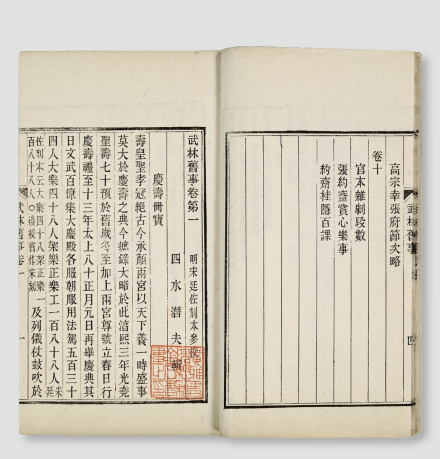 高宗幸張府節次略
卷十
官本雜劇段數
張約齋賞心樂事
約齋桂隱百課
武林舊事
四
武林舊事卷第一
明宋廷佐刻本參校
四水潛夫 輯
慶壽冊寶
壽皇聖孝冠絕古今承顏兩宮以天下養一時盛事
莫大於慶壽之典今摭錄大略於此淳熙三年光堯
聖壽七十預於舊歲冬至加上兩宮尊號立春日行
慶壽禮至十三年太上八十正月元日再舉慶典其
日文武百僚集大慶殿各服朝服用法駕五百三十
四人大樂四十八人架樂正樂工一百八十八人
及列儀仗鼓吹於
武林舊事卷一
一